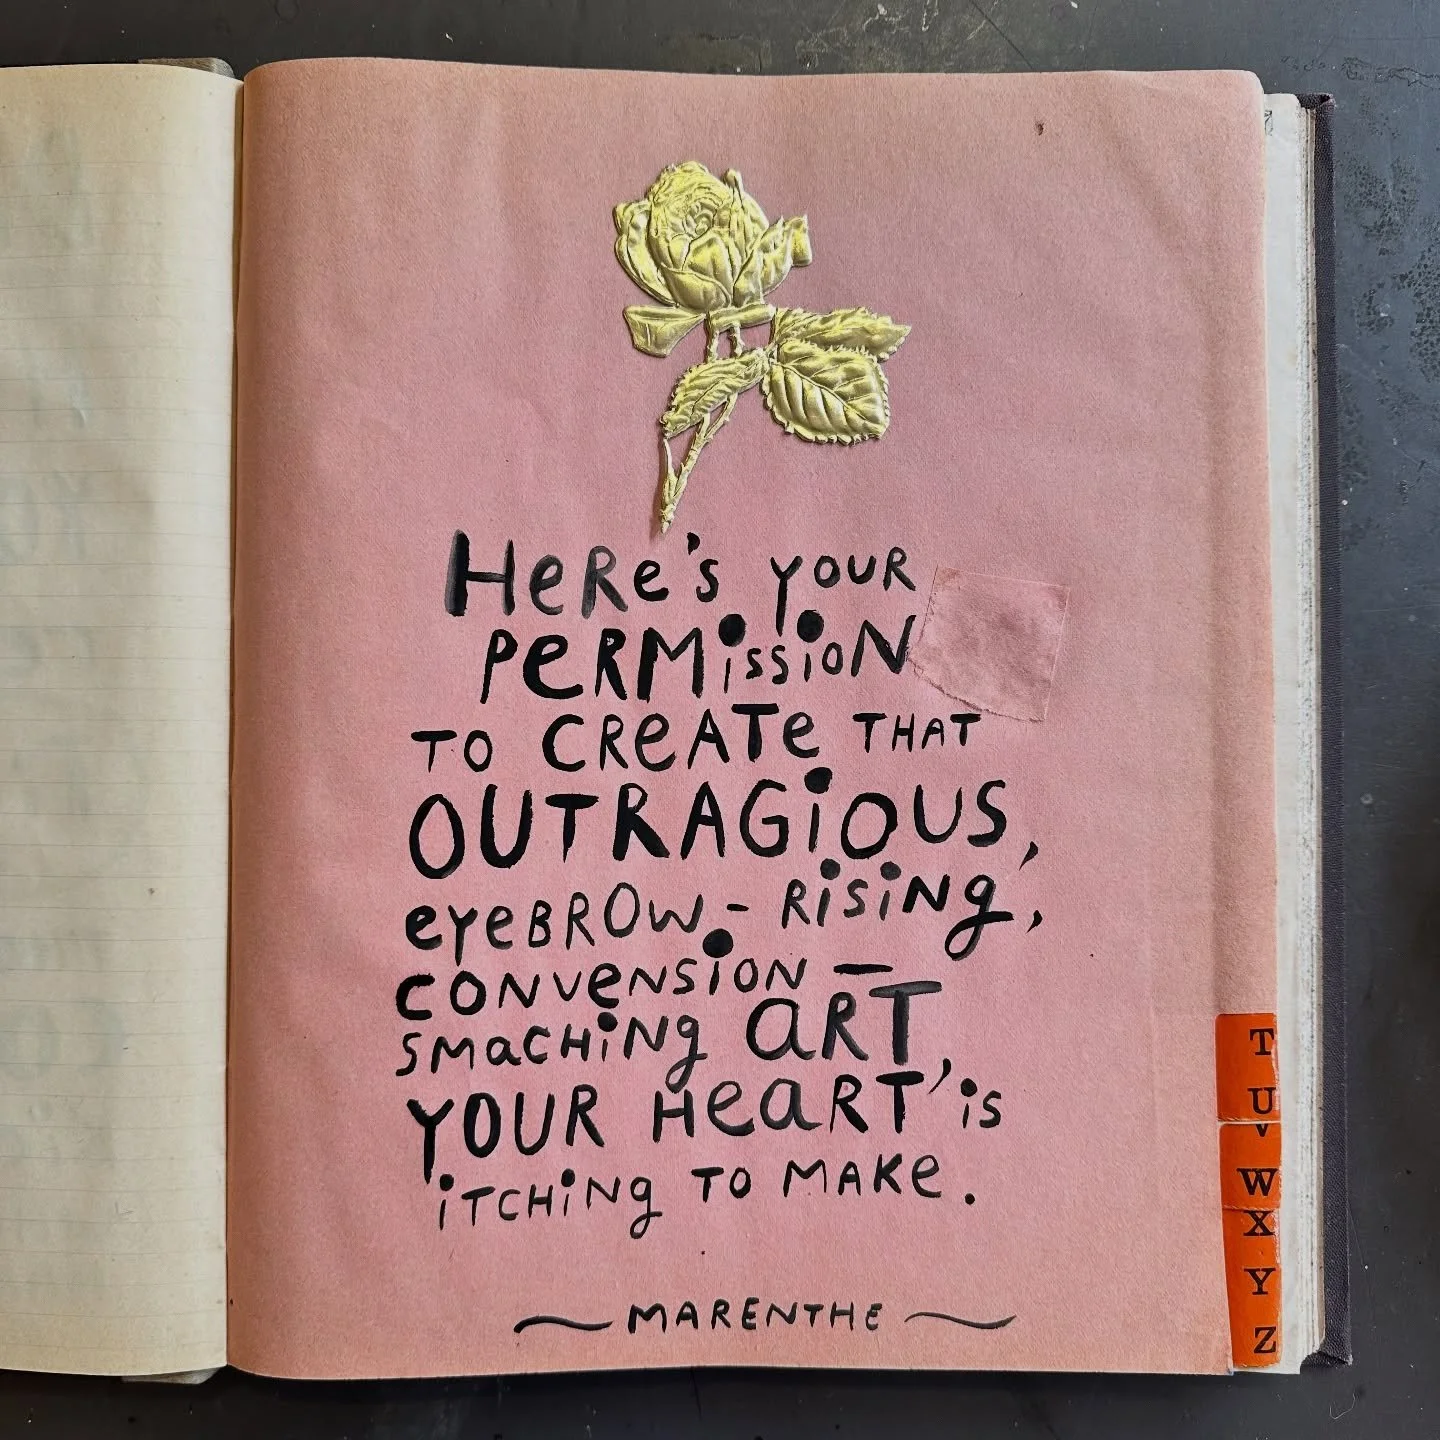 HeRe's YOUR
PeRMissioN
TO CReATe THAT
OUTRAGiOUS,
eyeBROW - RiSiNg,
CONVeNSiON —
SMaCHiNg aRT,
YOUR HeaRT' is
iTCHiNg TO MAKe.
~ MARENTHE ~
T
U
V
W
X
Y
Z